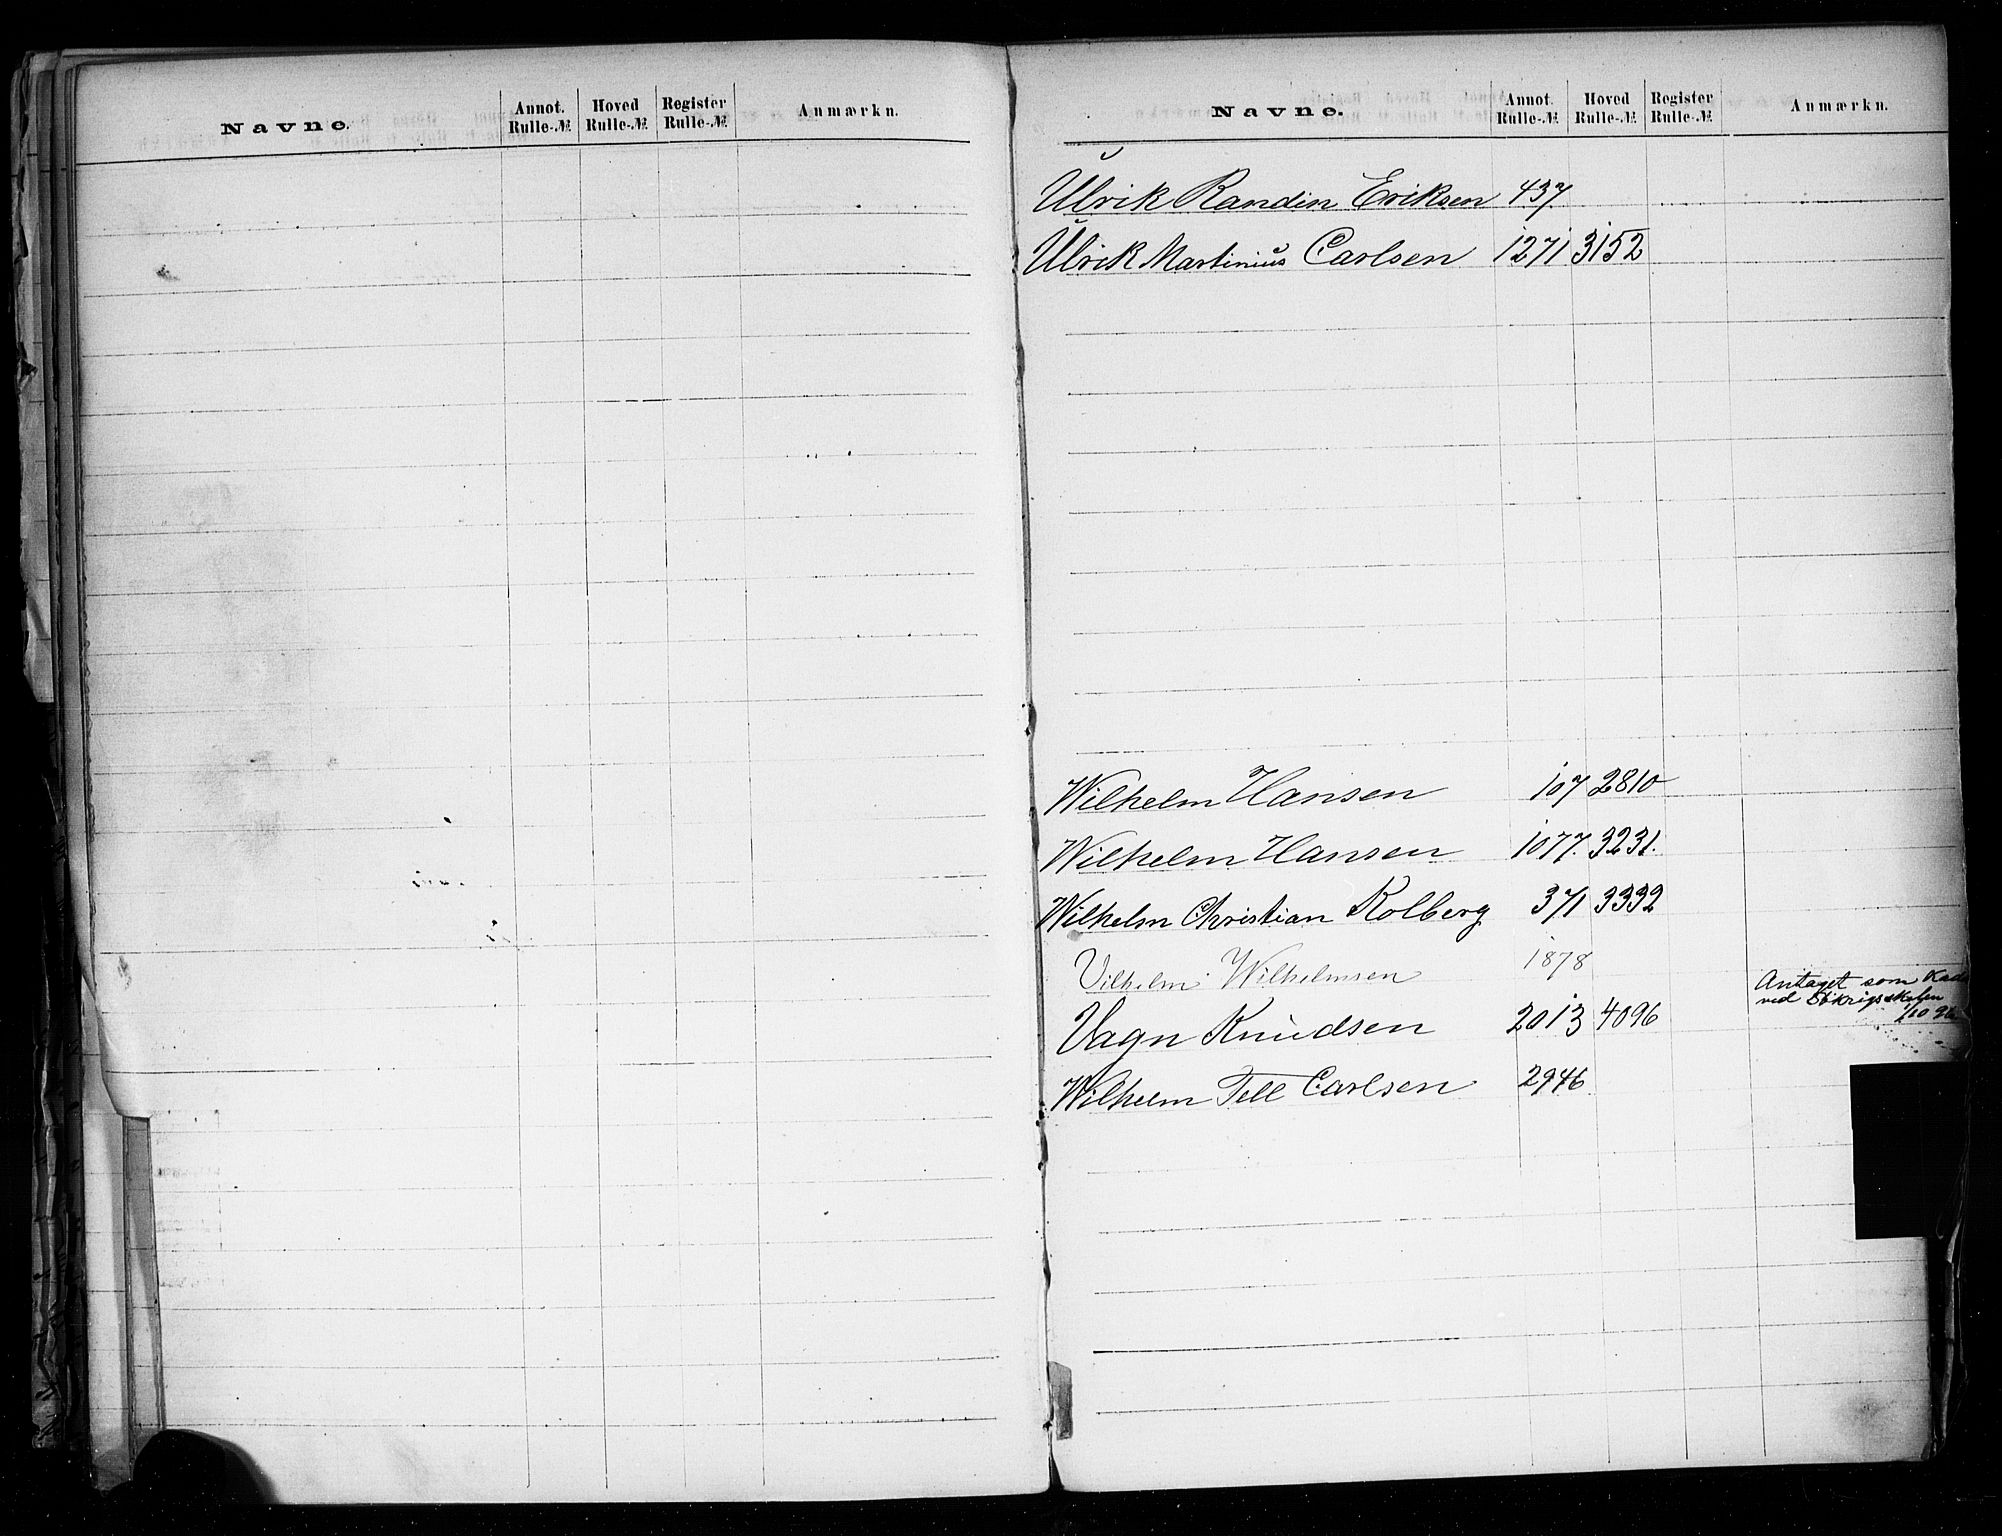 Navne. Annot. Rulle-№ Hoved Rulle-№ Register Rulle-№ Anmærkn.
Navne. Annot. Rulle-№ Hoved Rulle-№ Register Rulle-№ Anmærkn.
Ulrik Randin Eriksen 437
Ulrik Martinius Carlsen 1271 3152
Wilhelm Hansen 107 2810
Wilhelm Hansen 1077. 3231.
Wilhelm Christian Kolberg 371 3332
Vilhelm Wilhelmsen 1878
Antaget som
ved Søkrigsskolen
1/10 96
Vagn Knudsen 2013 4096
Wilhelm Tell Carlsen 2946